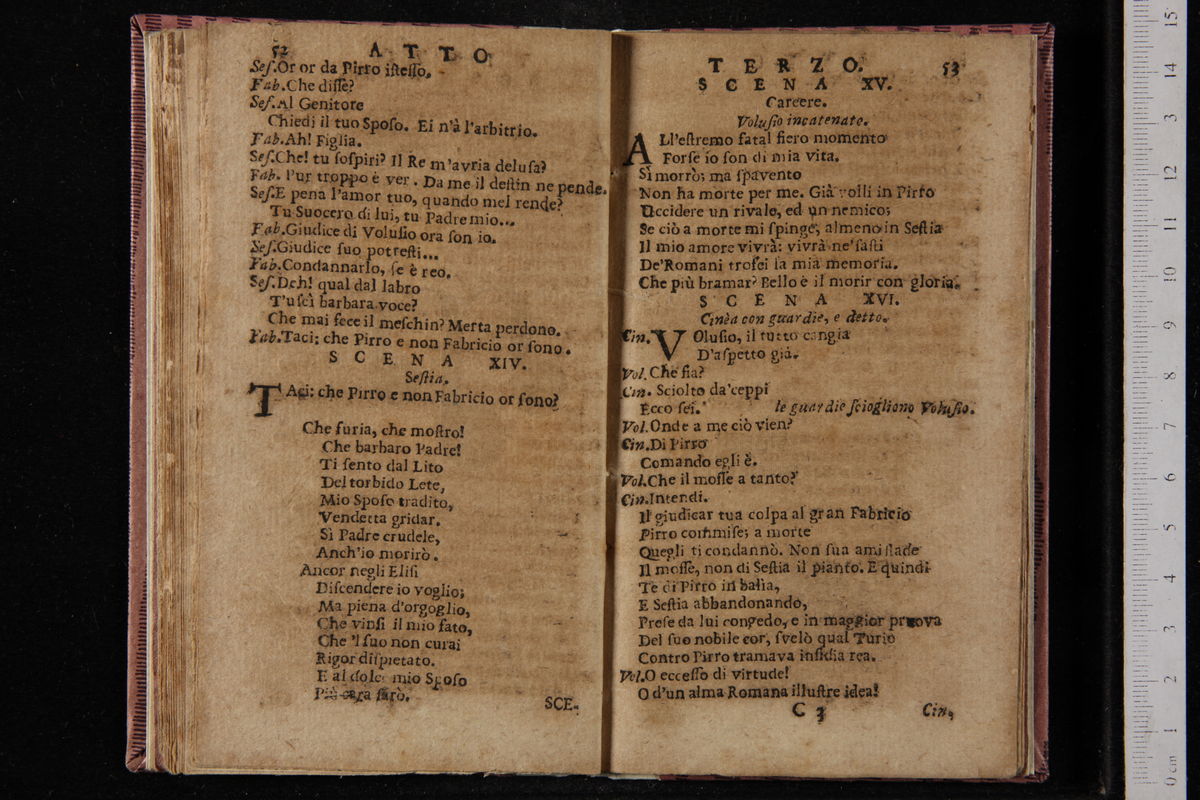 52 ATTO
Seſ.Or or da Pirro iſteſſo.
Fab.Che diſſe?
Seſ.Al Genitore
Chiedi il tuo Spoſo. Ei n'à l'arbitrio.
Fab.Ah! Figlia.
Seſ.Che! tu ſoſpiri? Il Re m'avria deluſa?
Fab. Pur troppo è ver. Da me il deſtin ne pende.
Seſ.E pena l'amor tuo, quando mel rende?
Tu Suocero di lui, tu Padre mio...
Fab.Giudice di Voluſio ora ſon io.
Seſ.Giudice ſuo potreſti...
Fab.Condannarlo, ſe è reo.
Seſ.Deh! qual dal labro
T'uſcì barbara voce?
Che mai fece il meſchin? Merta perdono.
Fab.Taci: che Pirro e non Fabricio or ſono.
SCENA XIV.
Seſtia.
TAci: che Pirro e non Fabricio or ſono?
Che furia, che moſtro!
Che barbaro Padre!
Ti ſento dal Lito
Del torbido Lete,
Mio Spoſo tradito,
Vendetta gridar.
Sì Padre crudele,
Anch'io morirò.
Ancor negli Eliſi
Diſcendere io voglio;
Ma piena d'orgoglio,
Che vinſi il mio fato,
Che 'l ſuo non curai
Rigor diſpietato.
E al dolce mio Spoſo
Più cara ſarò.
SCE-
TERZO. 53
SCENA XV.
Carcere.
Voluſio incatenato.
ALl'eſtremo fatal fiero momento
Forſe io ſon di mia vita.
Sì morrò; ma ſpavento
Non ha morte per me. Già volli in Pirro
Uccidere un rivale, ed un nemico;
Se ciò a morte mi ſpinge, almeno in Seſtia
Il mio amore vivrà: vivrà ne'faſti
De'Romani trofei la mia memoria.
Che più bramar? Bello è il morir con gloria.
SCENA XVI.
Cinèa con guardie, e detto.
Cin. VOluſio, il tutto cangia
D'aſpetto già.
Vol. Che fia?
Cin. Sciolto da'ceppi
Ecco ſei. le guardie ſciogliono Voluſio.
Vol.Onde a me ciò vien?
Cin.Di Pirro
Comando egli è.
Vol.Che il moſſe a tanto?
Cin.Intendi.
Il giudicar tua colpa al gran Fabricio
Pirro commiſe; a morte
Quegli ti condannò. Non ſua amiſtade
Il moſſe, non di Seſtia il pianto. E quindi
Te di Pirro in balìa,
E Seſtia abbandonando,
Preſe da lui congedo, e in maggior pruova
Del ſuo nobile cor, ſvelò qual Turio
Contro Pirro tramava inſidia rea.
Vol.O ecceſſo di virtude!
O d'un alma Romana illuſtre idea!
C 3 Cin,
0 cm 1 2 3 4 5 6 7 8 9 10 11 12 3 14 15